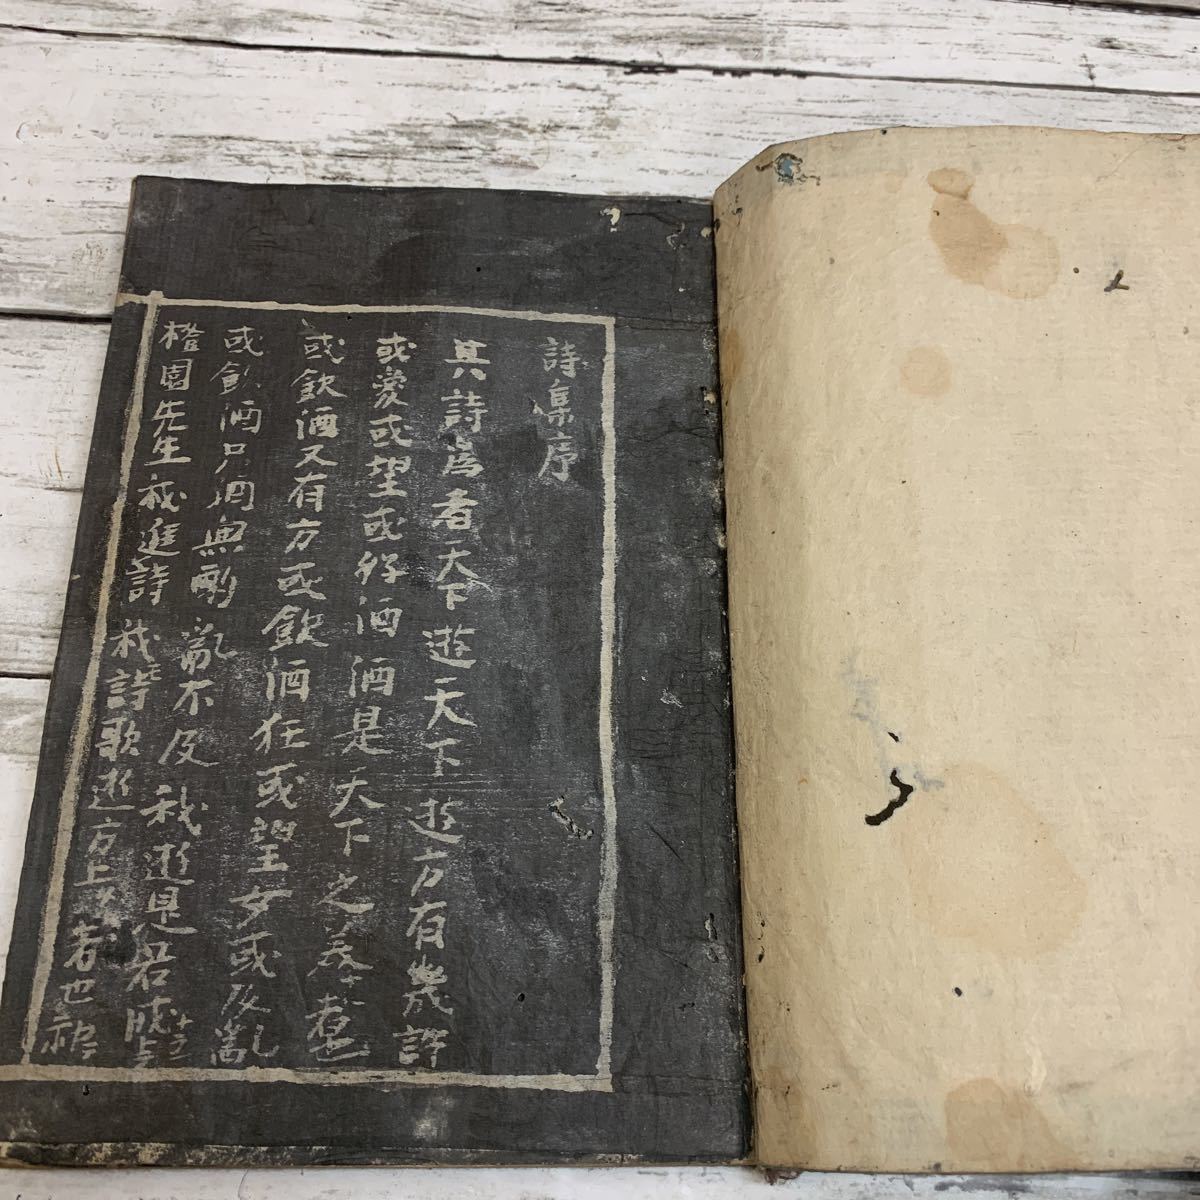 詩集序
其詩為者天下遊天下遊方有幾許
或愛或望或好酒酒是天下之美
或飲酒又有方或飲酒狂或望女或及亂
或飲酒只酒無酌亂不及我遊是
橙園先生我進詩我詩歌遊方上者也